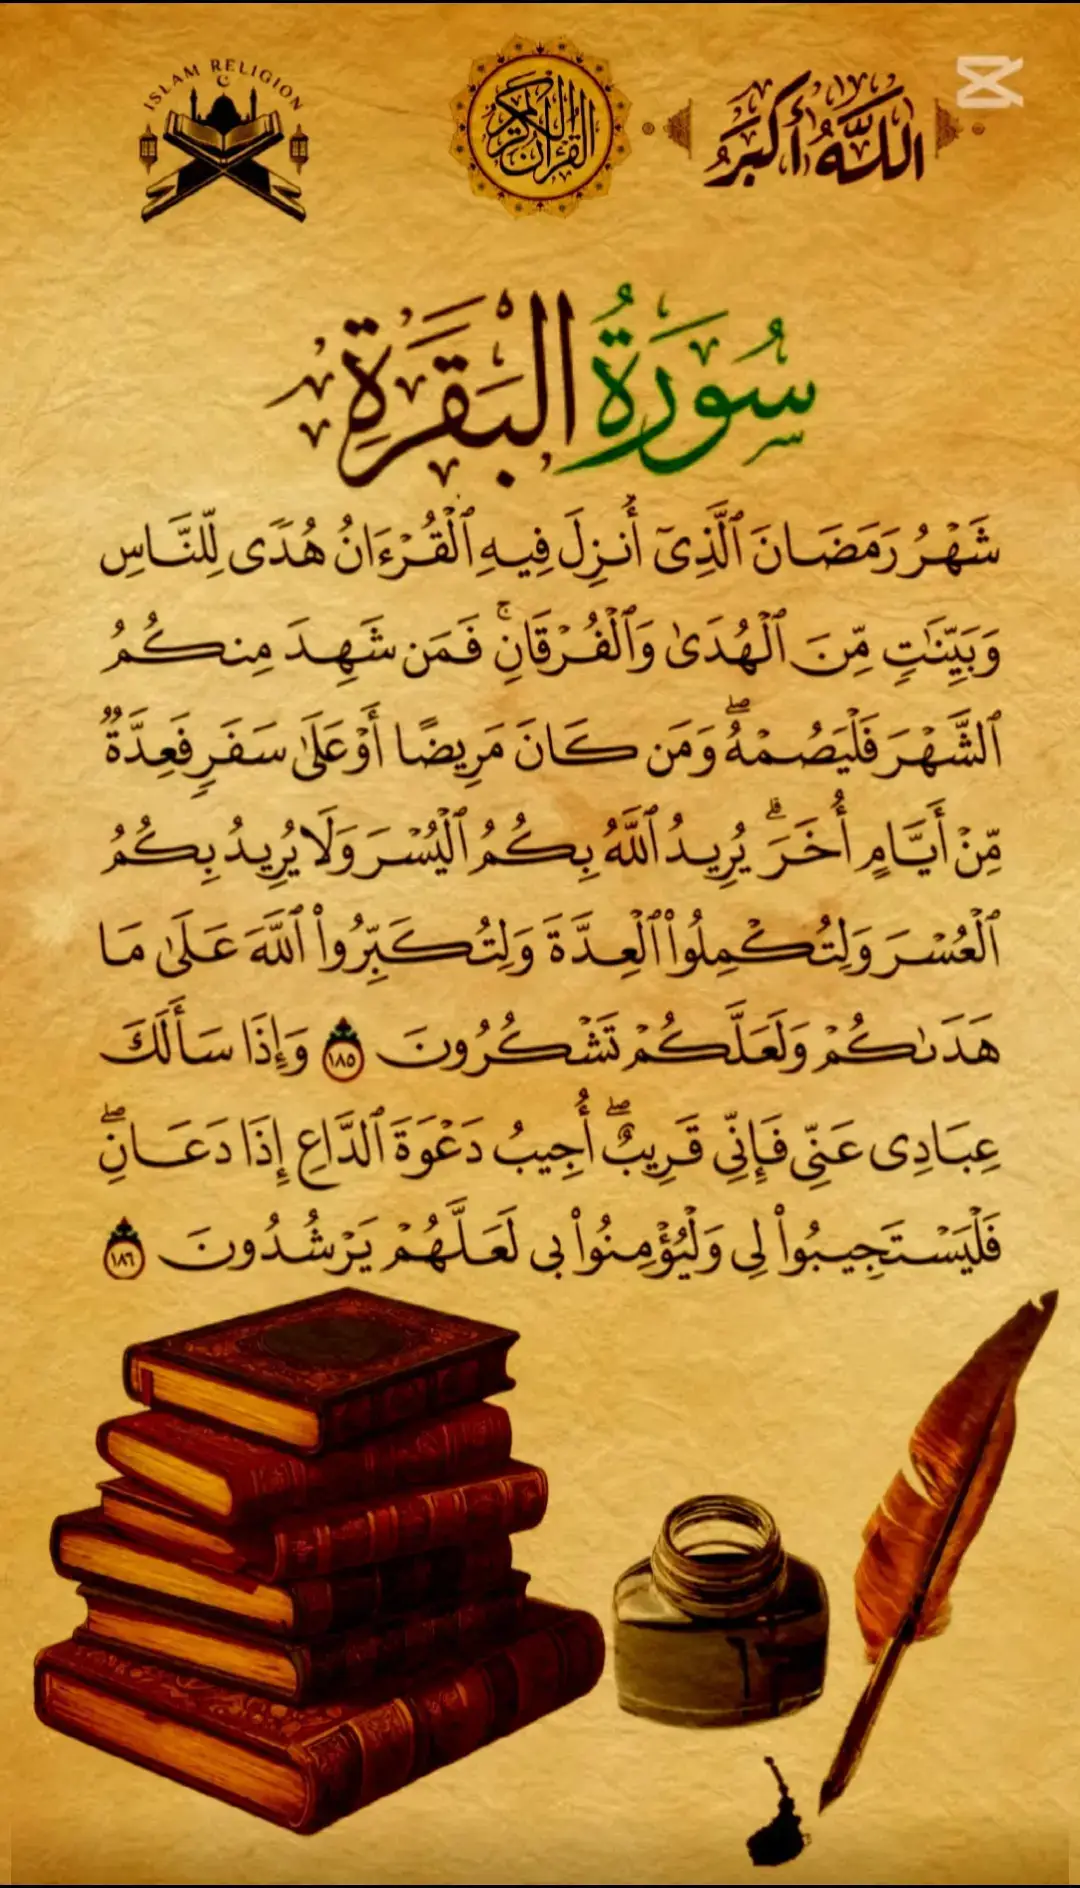 ISLAM RELIGION
القرآن الكريم
اللَّهُ أَكْبَرُ
سُورَةُ الْبَقَرَةِ
شَهْرُ رَمَضَانَ ٱلَّذِىٓ أُنزِلَ فِيهِ ٱلْقُرْءَانُ هُدًى لِّلنَّاسِ
وَبَيِّنَٰتٍ مِّنَ ٱلْهُدَىٰ وَٱلْفُرْقَانِ ۚ فَمَن شَهِدَ مِنكُمُ
ٱلشَّهْرَ فَلْيَصُمْهُ ۖ وَمَن كَانَ مَرِيضًا أَوْ عَلَىٰ سَفَرٍ فَعِدَّةٌ
مِّنْ أَيَّامٍ أُخَرَ ۗ يُرِيدُ ٱللَّهُ بِكُمُ ٱلْيُسْرَ وَلَا يُرِيدُ بِكُمُ
ٱلْعُسْرَ وَلِتُكْمِلُوا۟ ٱلْعِدَّةَ وَلِتُكَبِّرُوا۟ ٱللَّهَ عَلَىٰ مَا
هَدَىٰكُمْ وَلَعَلَّكُمْ تَشْكُرُونَ ١٨٥ وَإِذَا سَأَلَكَ
عِبَادِى عَنِّى فَإِنِّى قَرِيبٌ ۖ أُجِيبُ دَعْوَةَ ٱلدَّاعِ إِذَا دَعَانِ ۖ
فَلْيَسْتَجِيبُوا۟ لِى وَلْيُؤْمِنُوا۟ بِى لَعَلَّهُمْ يَرْشُدُونَ ١٨٦